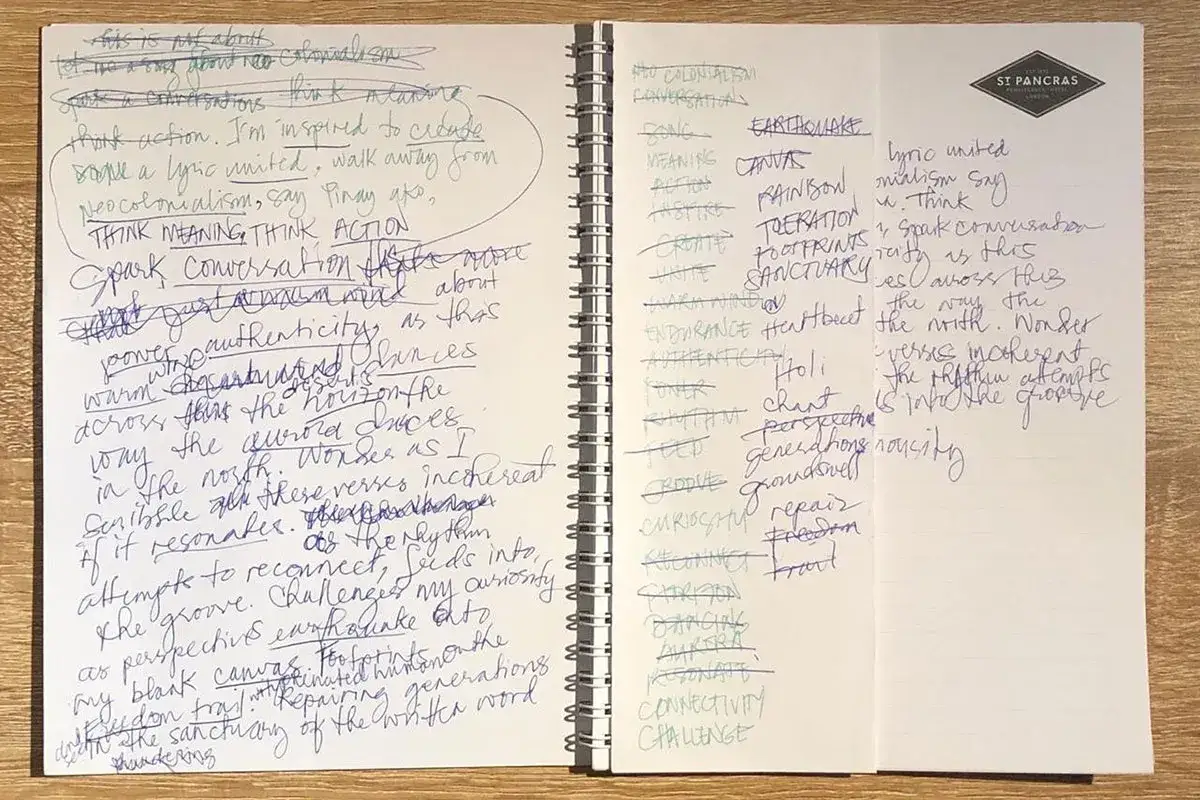 this is not about
let me a song about neo colonialism
Spark a conversations think meaning
think action. I'm inspired to create
a lyric united, walk away from
neocolonialism, say Pinay ako,
THINK MEANING, THINK ACTION
Spark conversation
about
power authenticity, as this
warm wind dances
across the deserts horizon the
way the aurora dances
in the north. Wonder as I
scribble these verses incoherent
if it resonates.
as the rhythm
attempts to reconnect, feeds into
the groove. Challenges my curiosity
as perspectives earthquake onto
my blank canvas. Footprints on the
human
Freedom trail. Repairing generations
in the sanctuary of the written word
thundering
NEO COLONIALISM
CONVERSATION
SONG
MEANING
ACTION
INSPIRE
CREATE
UNITE
WARM WIND
ENDURANCE
AUTHENTICITY
POWER
RHYTHM
FEED
GROOVE
CURIOSITY
RECONNECT
HORIZON
DANCING
AURORA
RESONATE
CONNECTIVITY
CHALLENGE
EARTHQUAKE
CANVAS
RAINBOW
TOLERATION
FOOTPRINTS
SANCTUARY
Heartbeat
Holi
chant
perspective
generations
groundswell
repair
Freedom
trail
ST PANCRAS
RENAISSANCE HOTEL
LONDON
lyric united
nialism say
Think
, spark conversation
icity as this
es across this
the way the
the north. Wonder
verses incoherent
the rhythm attempts
s into the groove
nousity